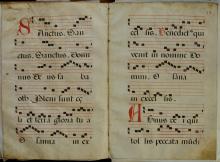 Sanctus. San
ctus. Sanctus. Domi
nus De us sa ba
oth. Pleni sunt cę
li et terra gloria tu a
O sanna in ex
cel sis. Benedict qui
venit in nomine Do
mini. O sana
in excel sis.
Agnus De i qui
tol lis peccata mūdi